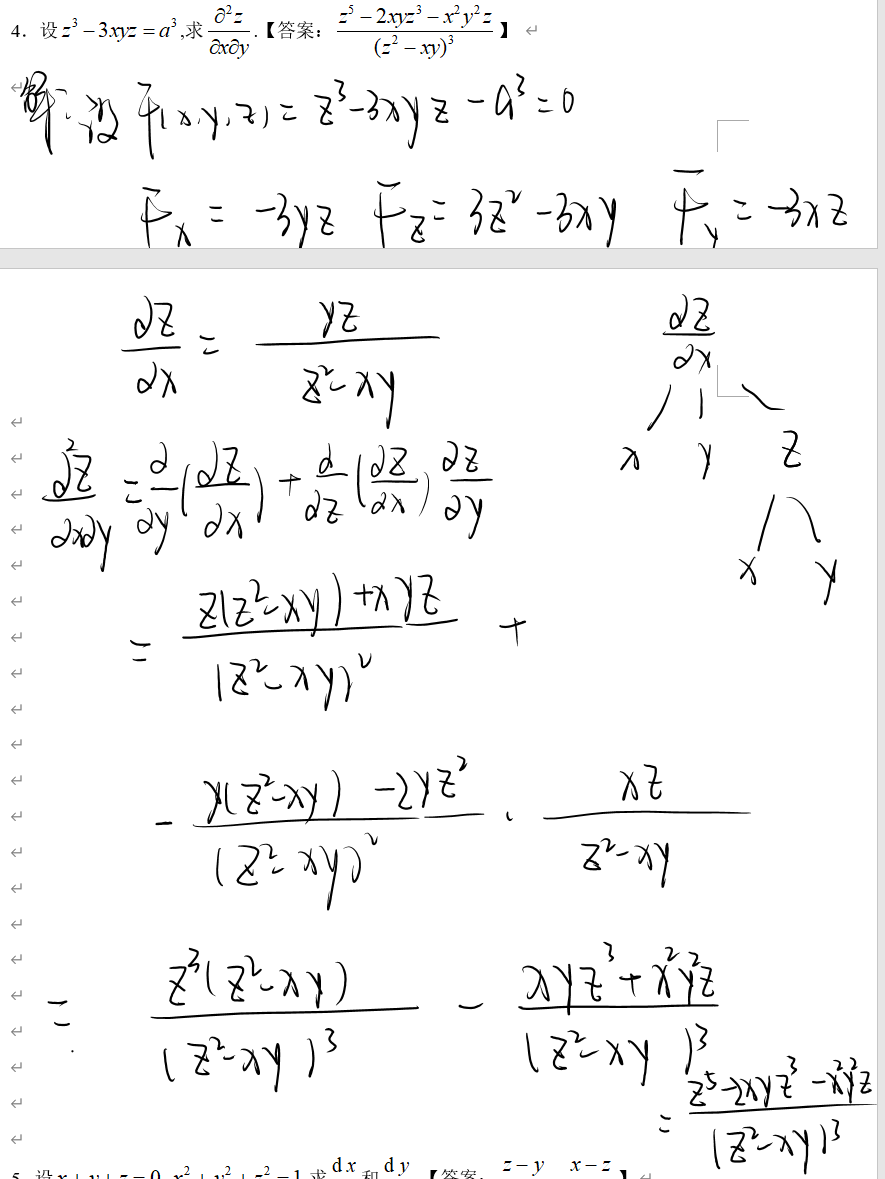 4．设 z³ − 3xyz = a³ ,求 ∂²z/∂x∂y .【答案： (z⁵ − 2xyz³ − x²y²z)/(z² − xy)³ 】
解：设 F(x,y,z) = z³ − 3xyz − a³ = 0
F_x = −3yz F_z = 3z² − 3xy F_y = −3xz
∂z/∂x = yz/(z² − xy)
∂z/∂x
x y z
x y
∂²z/∂x∂y = ∂/∂y (∂z/∂x) + ∂/∂z (∂z/∂x) ∂z/∂y
= (z(z² − xy) + xyz)/(z² − xy)² +
− (y(z² − xy) − 2yz²)/(z² − xy)² · xz/(z² − xy)
= z³(z² − xy)/(z² − xy)³ − (xyz³ + x²y²z)/(z² − xy)³
= (z⁵ − 2xyz³ − x²y²z)/(z² − xy)³
5. 设 x + y + z = 0, x² + y² + z² = 1, 求 dx 和 dy 【答案： z − y x − z 】